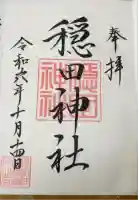 奉拝
穏田神社
令和六年十月十四日